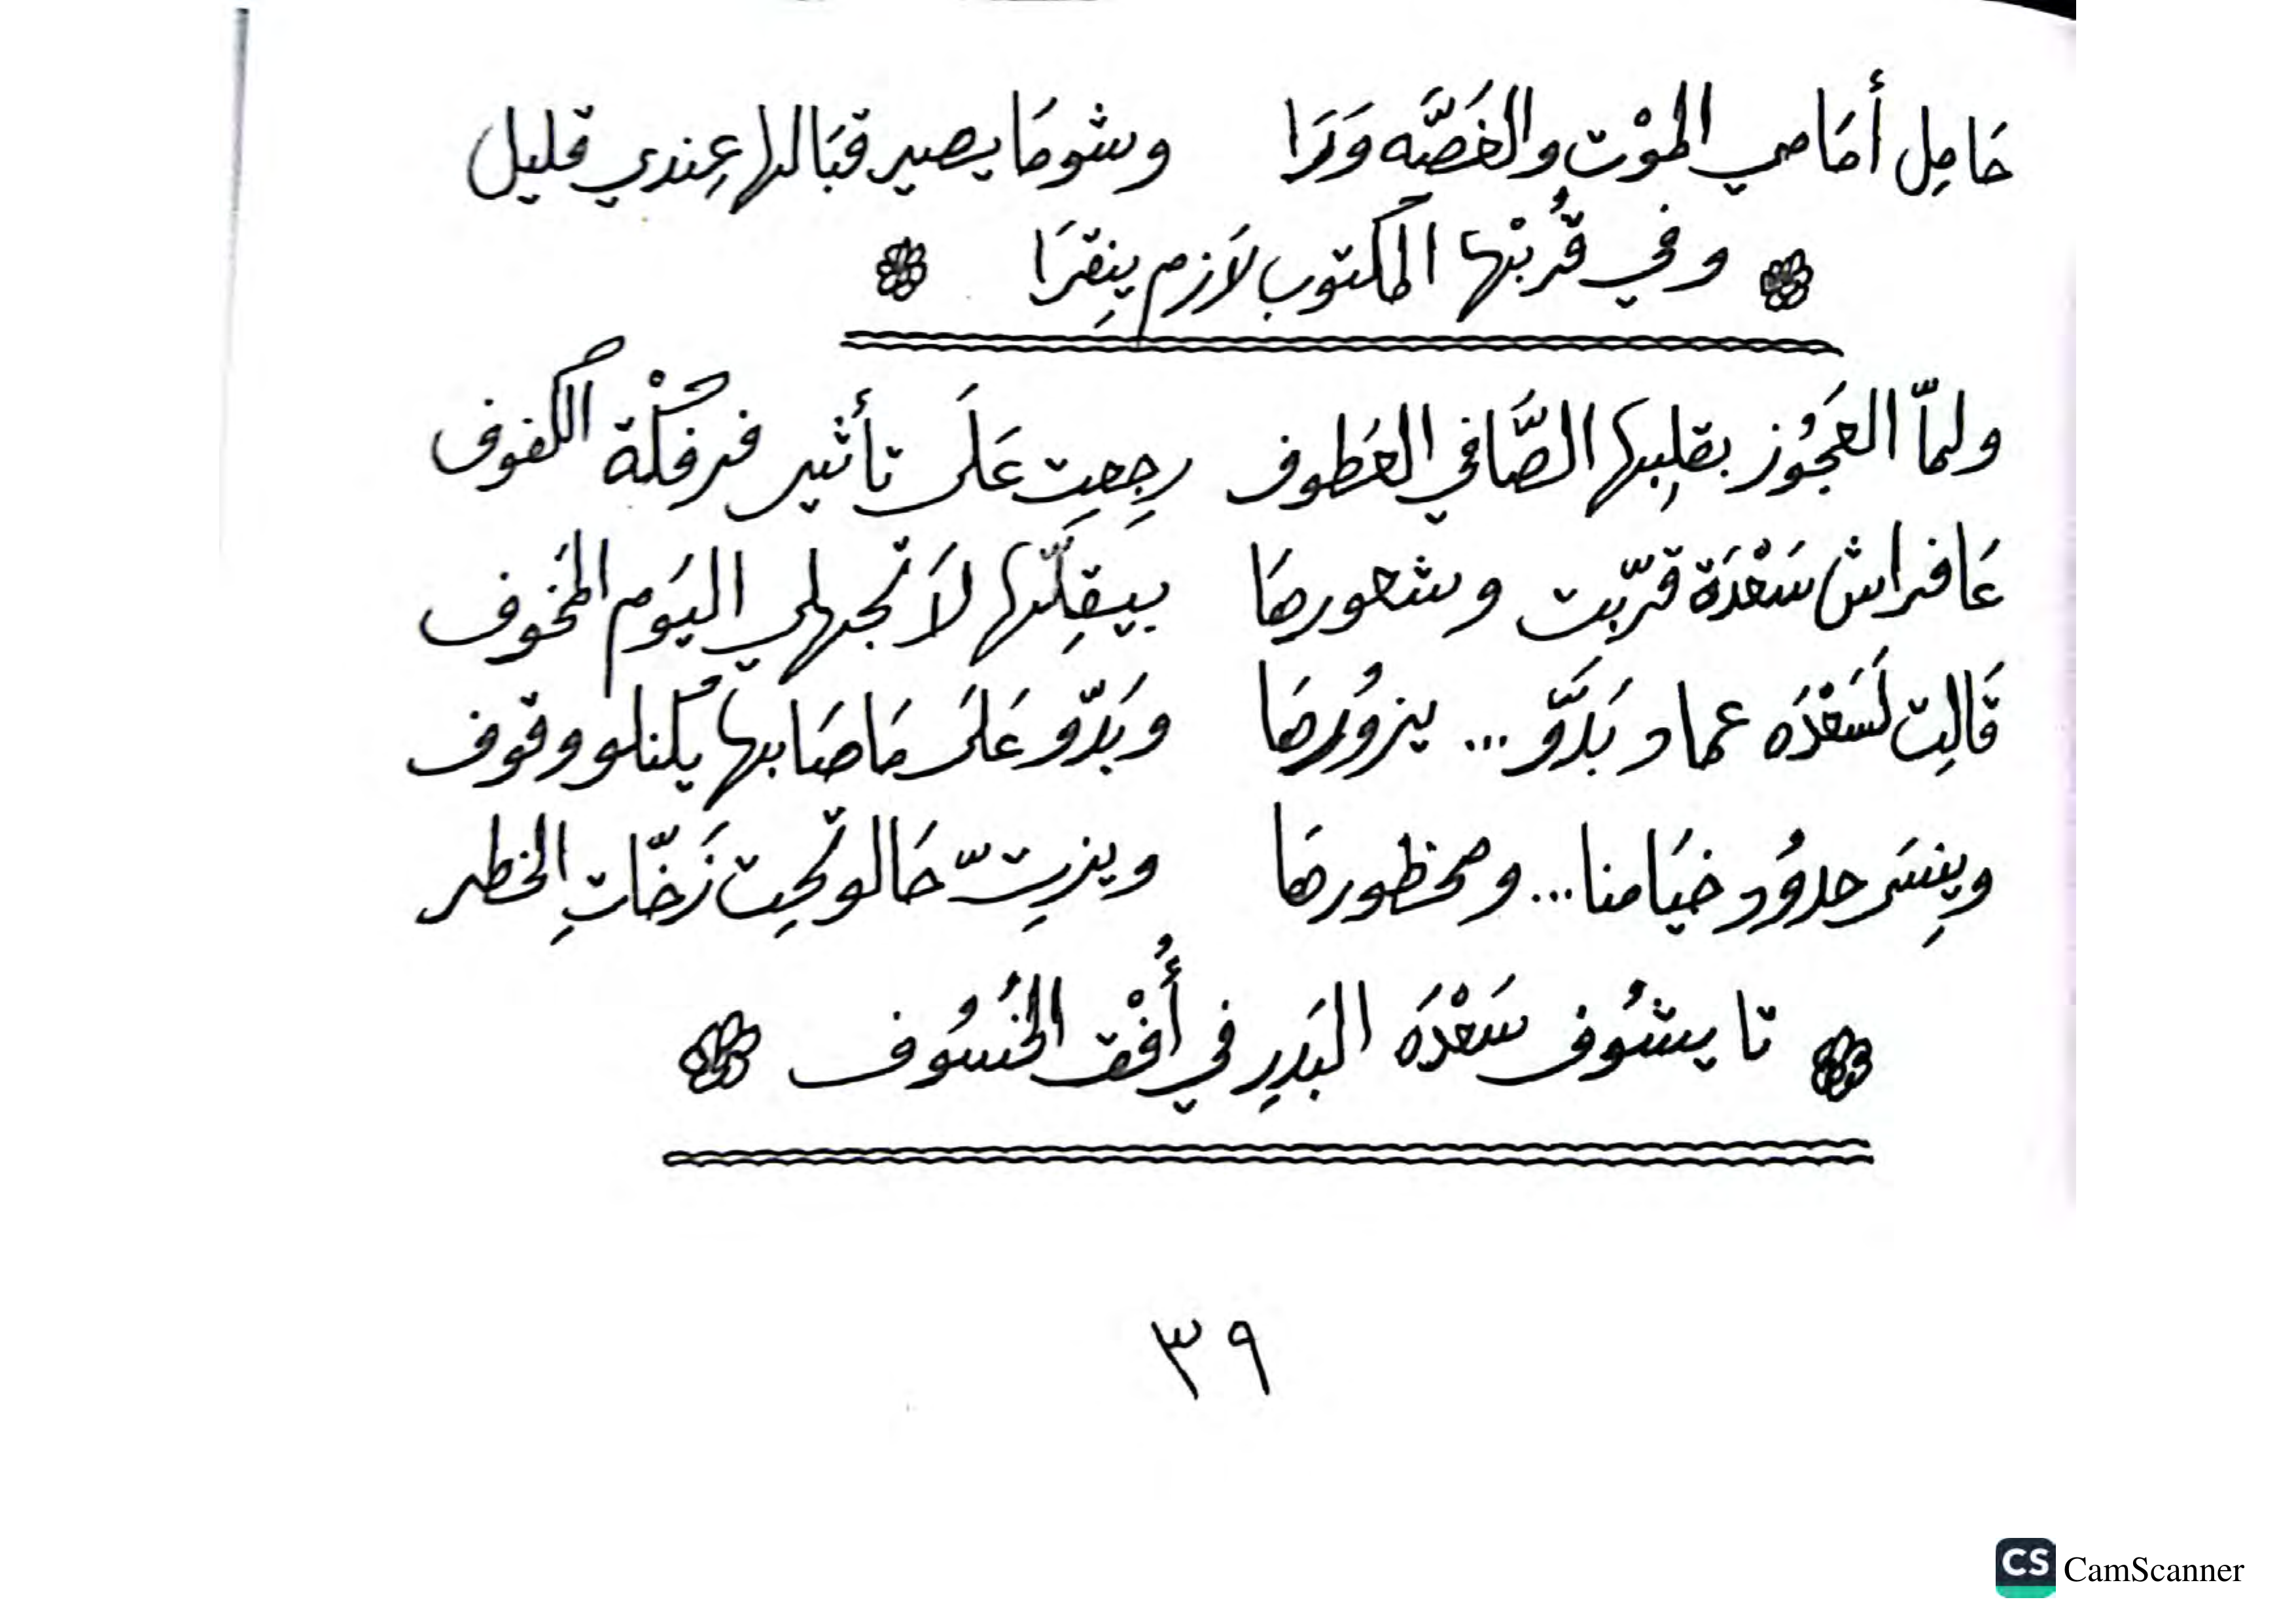 حَامِل أمَامي الموْت والغَصَّه وَرَا    وشو مَا يصير قبَالها عِندي قليل
وفي قُرْبْها المكتوب لاَزم ينِقرَا
ولمّا العَجُوز بقلِبها الصَّافي العَطوف    رجِعِت عَلَى تأثير فرفكْة الكفوف
عَا فراش سَعْدَة قرّبت وشعورهَا    بيقِلّها لاَ تجهلي اليَوم المخَوف
قَالِت لَسَعْدَه عماد بَدَّو ... يزوُرهَا    وبَدّو عَلَى مَا صَابها يُكنلو وقوف
وينِسَى حدوُد خيَامنا... ومحظورهَا    ويزِتّ حَالو تحِت زَخّاتِ الخطر
تا يشوُف سَعْدَه البَدِر في أُفْق الخُسُوف
٣٩
CS CamScanner